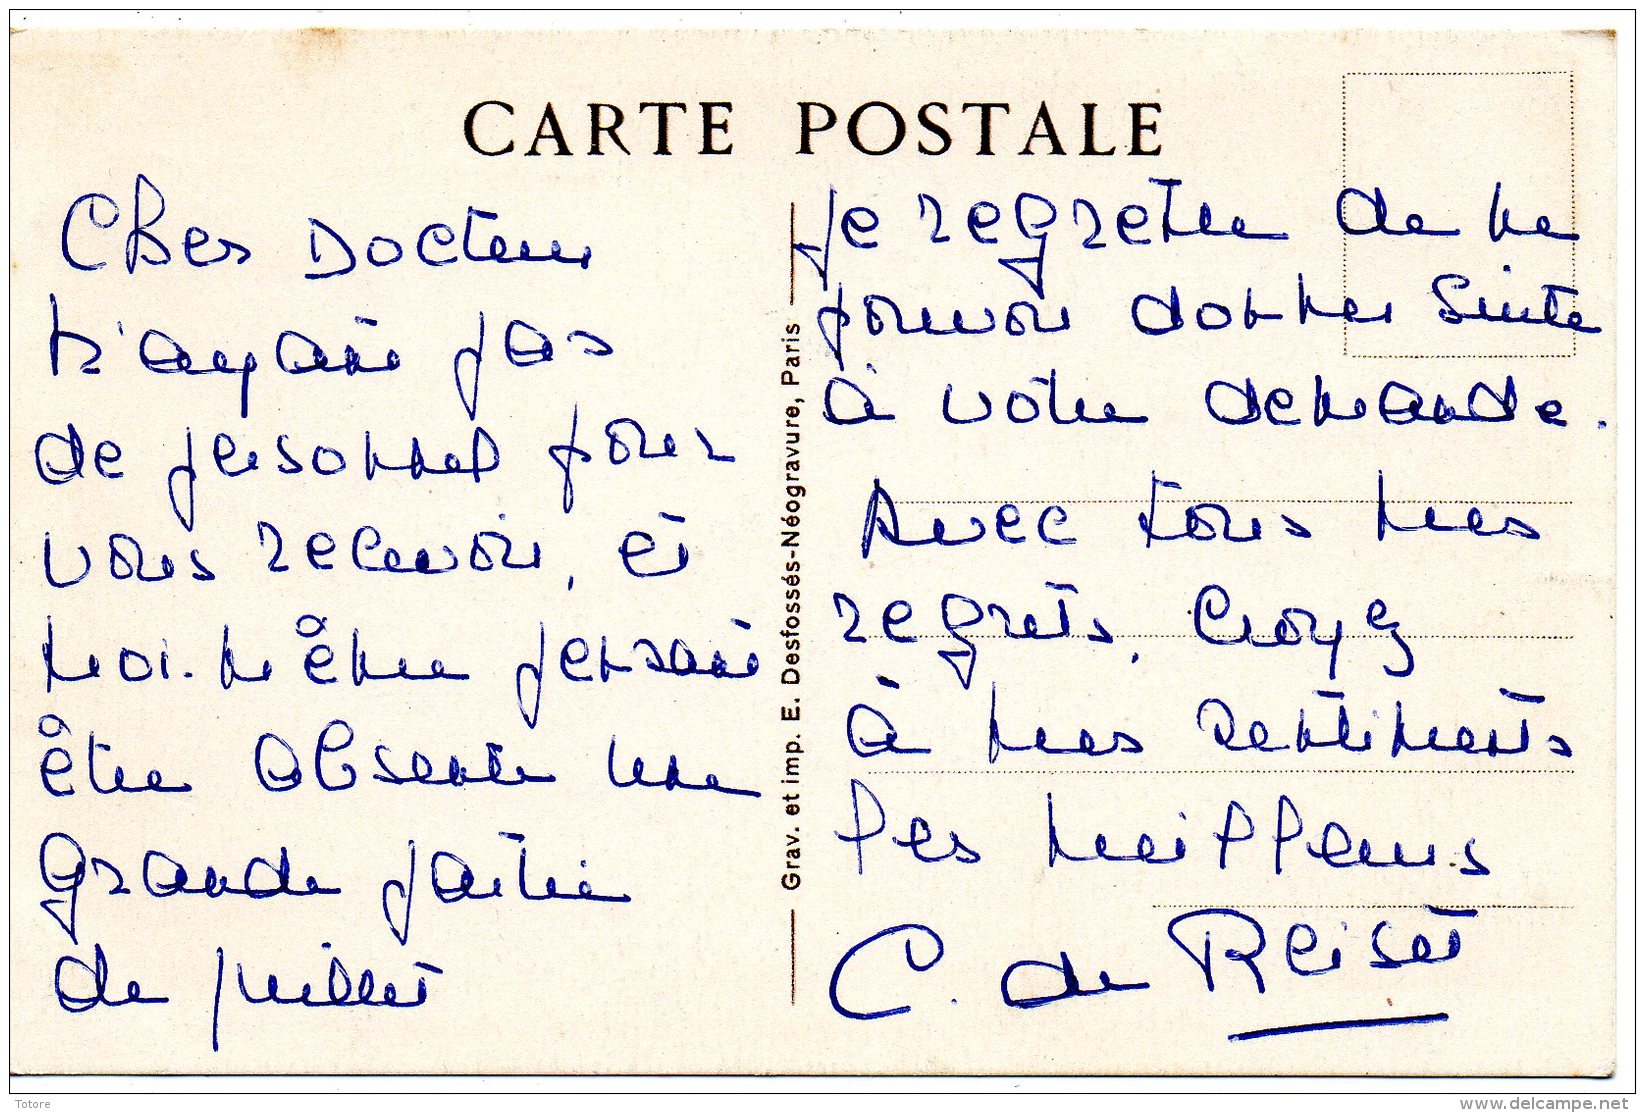 CARTE POSTALE
Cher Docteur
N'ayant pas
de personnel pour
vous recevoir, et
moi-même pensant
être absente une
grande partie
de juillet
Je regrette de ne
pouvoir donner suite
à votre demande.
Avec tous mes
regrets, croyez
à mes sentiments
les meilleurs
C. de Reiset
Grav. et imp. E. Desfossés-Néogravure, Paris
Totore
www.delcampe.net